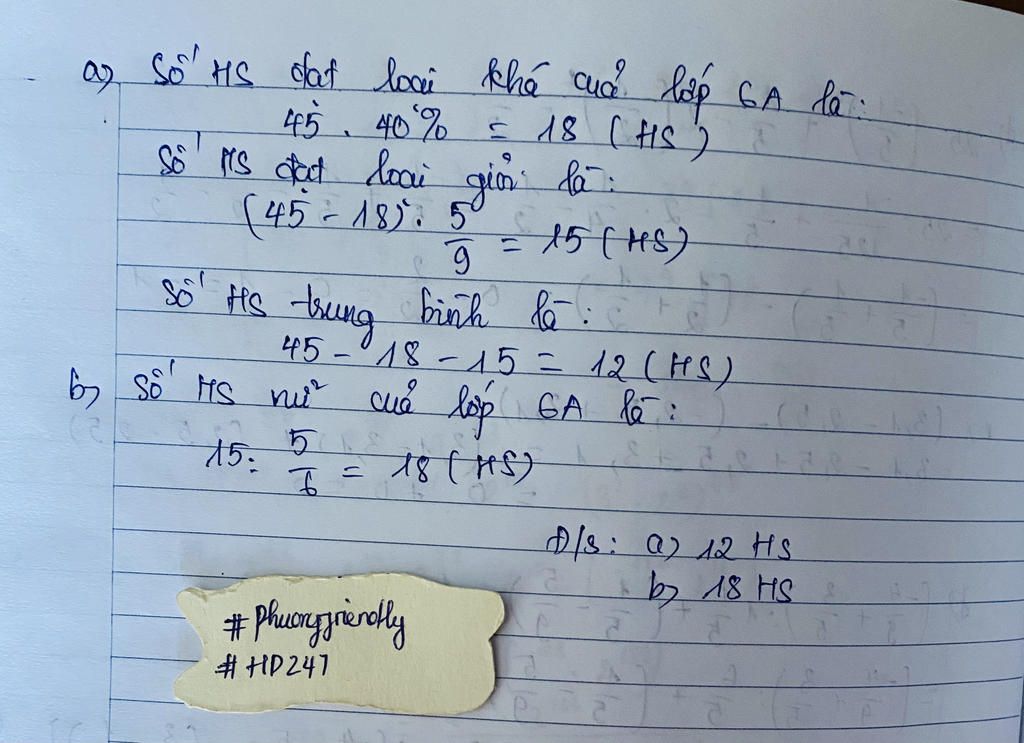 a) Số HS đạt loại khá của lớp 6A là:
45 . 40% = 18 (HS)
Số HS đạt loại giỏi là:
(45 - 18) . 5/9 = 15 (HS)
Số HS trung bình là:
45 - 18 - 15 = 12 (HS)
b) Số HS nữ của lớp 6A là:
15 : 5/6 = 18 (HS)
Đ/S: a) 12 HS
b) 18 HS
#Phuongfriendly
#HD247